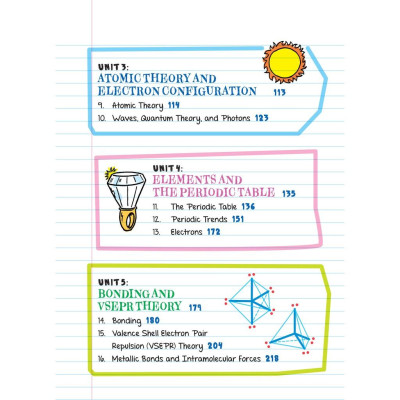 UNIT 3:
ATOMIC THEORY AND
ELECTRON CONFIGURATION 113
9. Atomic Theory 114
10. Waves, Quantum Theory, and Photons 123
UNIT 4:
ELEMENTS AND
THE PERIODIC TABLE 135
11. The Periodic Table 136
12. Periodic Trends 151
13. Electrons 172
UNIT 5:
BONDING AND
VSEPR THEORY 179
14. Bonding 180
15. Valence Shell Electron Pair
Repulsion (VSEPR) Theory 204
16. Metallic Bonds and Intramolecular Forces 218